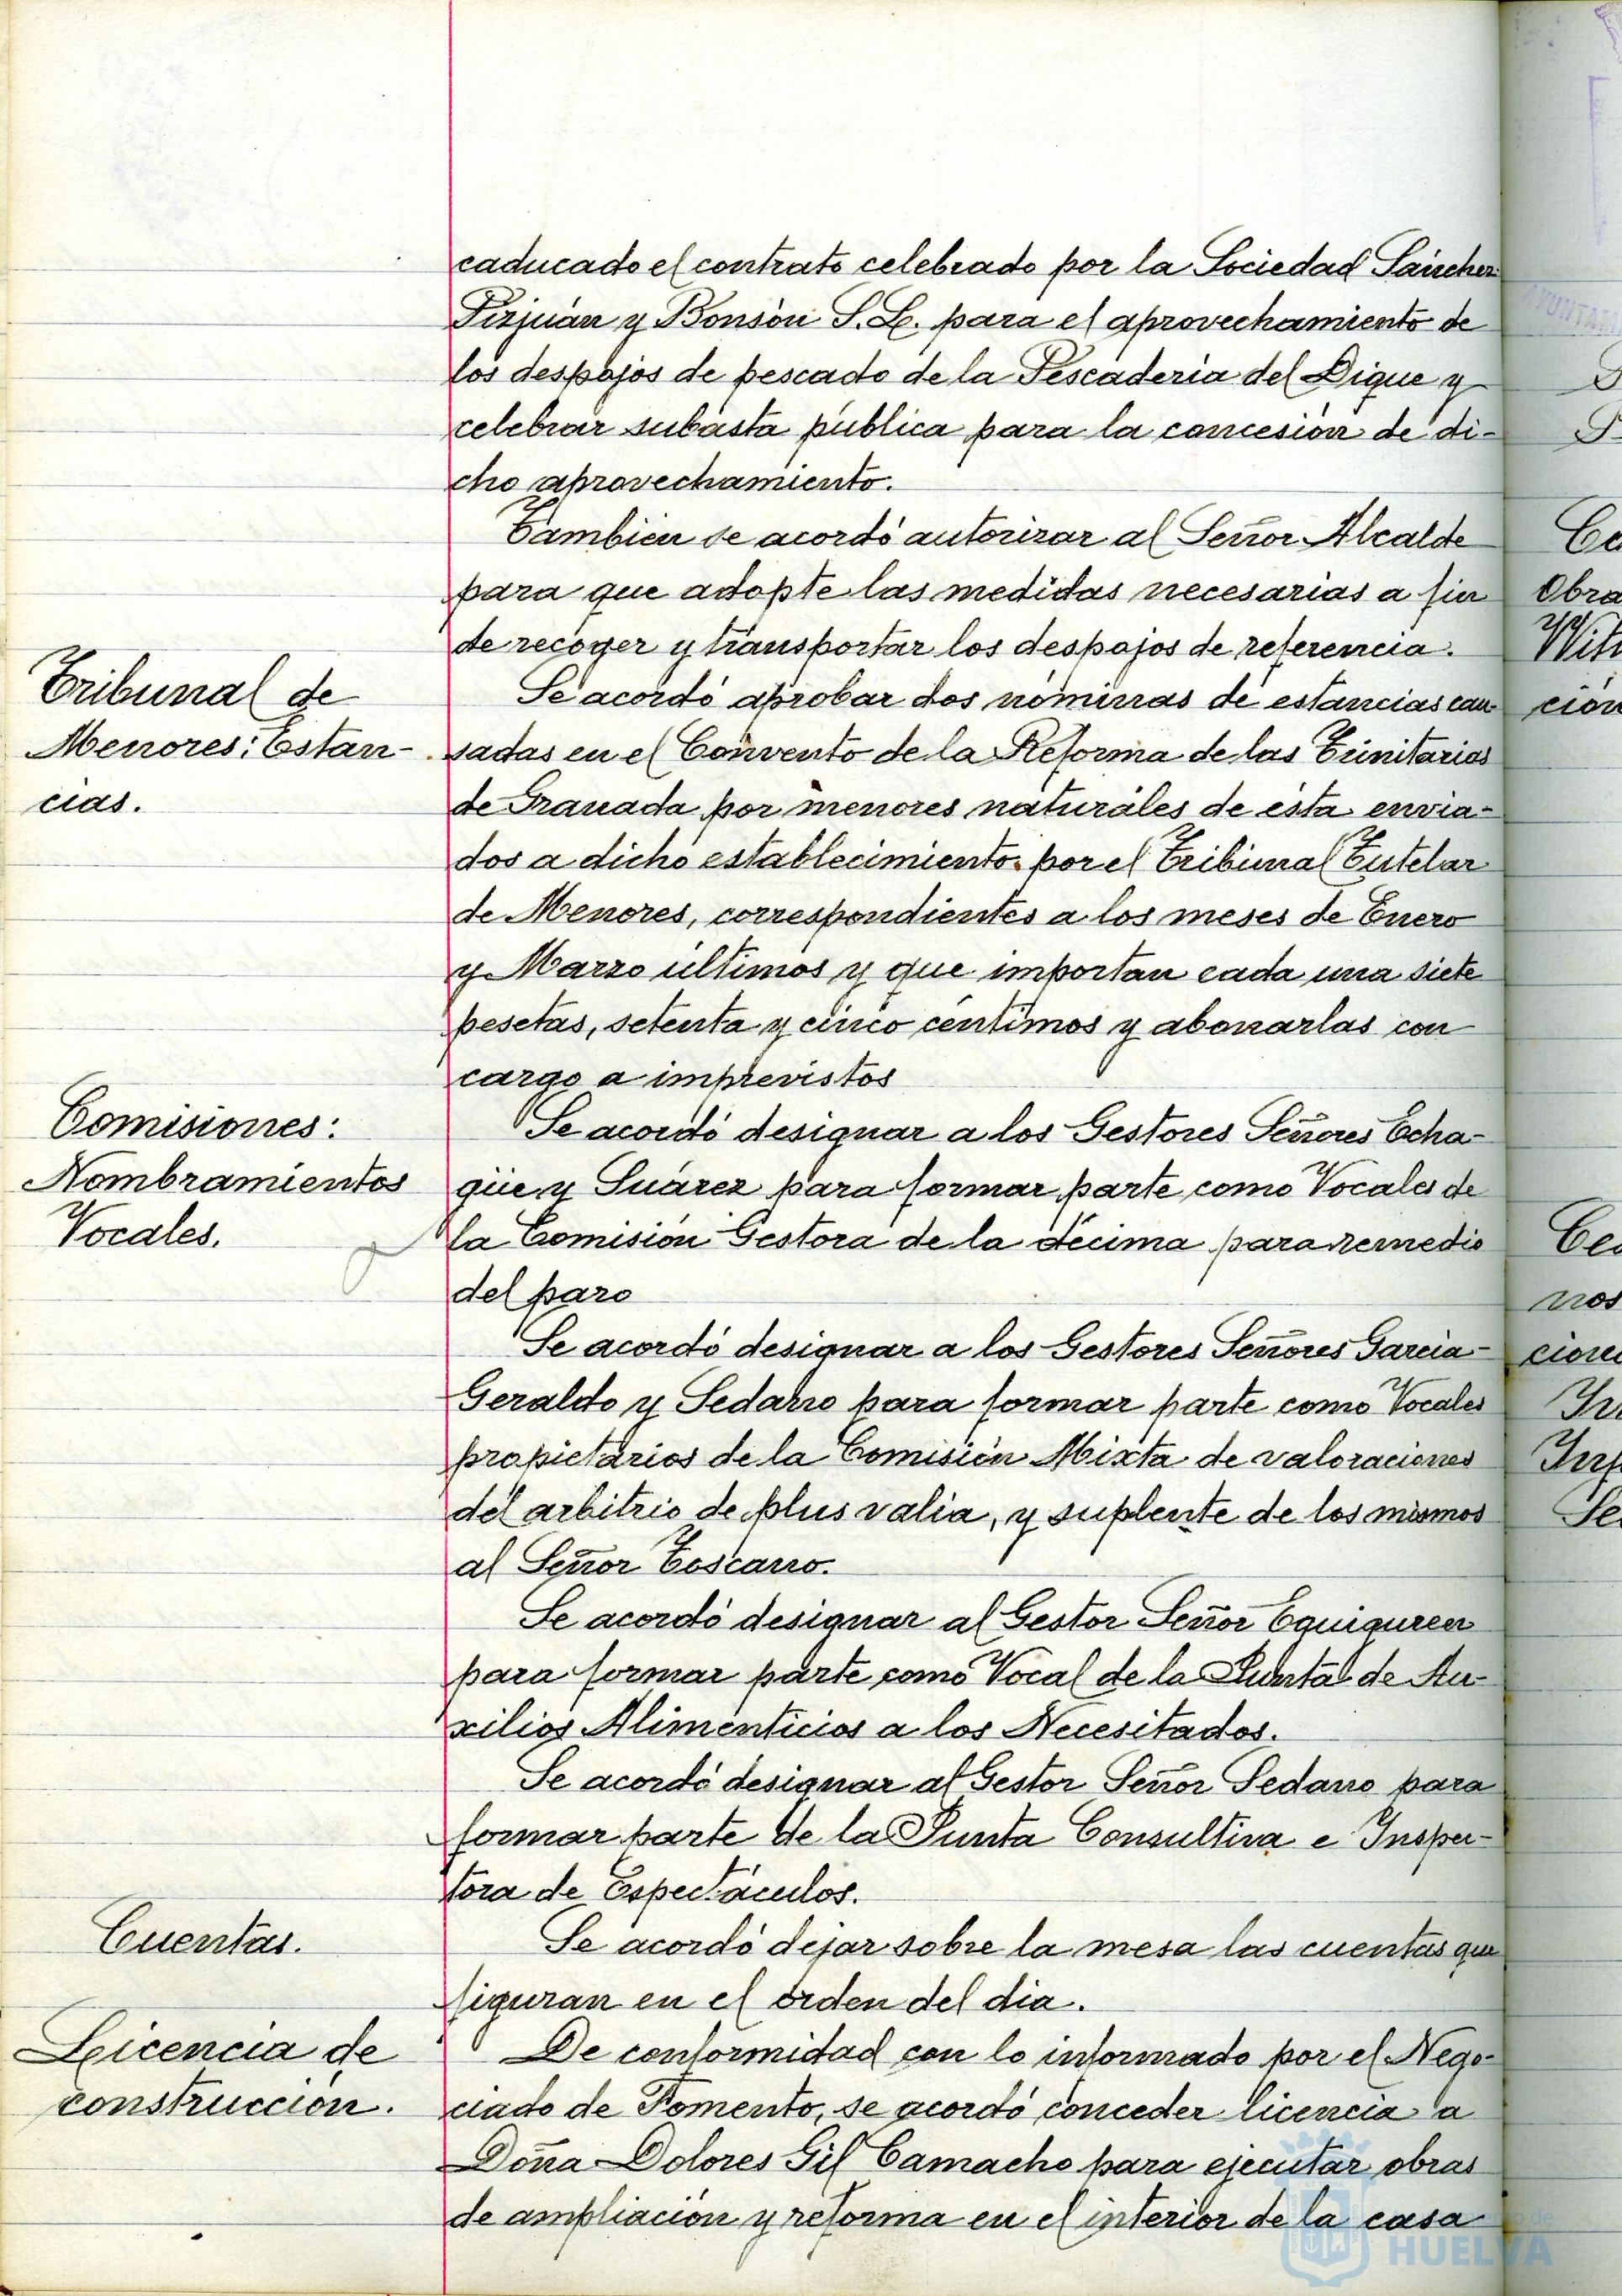 caducado el contrato celebrado por la Sociedad Sánchez
Pizjuán y Bonsón S. L. para el aprovechamiento de
los despojos de pescado de la Pescadería del Dique y
celebrar subasta pública para la concesión de di-
cho aprovechamiento.
Tambien se acordó autorizar al Señor Alcalde
para que adopte las medidas necesarias a fin
de recoger y transportar los despojos de referencia.
Tribunal de
Menores: Estan-
cias.
Se acordó aprobar dos nóminas de estancias cau-
sadas en el Convento de la Reforma de las Trinitarias
de Granada por menores naturales de ésta envia-
dos a dicho establecimiento por el Tribunal Tutelar
de Menores, correspondientes a los meses de Enero
y Marzo últimos y que importan cada una siete
pesetas, setenta y cinco céntimos y abonarlas con
cargo a imprevistos
Comisiones:
Nombramientos
Vocales.
Se acordó designar a los Gestores Señores Echa-
güe y Suárez para formar parte como Vocales de
la Comisión Gestora de la décima para remedio
del paro
Se acordó designar a los Gestores Señores Garcia-
Geraldo y Sedano para formar parte como Vocales
propietarios de la Comisión Mixta de valoraciones
del arbitrio de plus valia, y suplente de los mismos
al Señor Toscano.
Se acordó designar al Gestor Señor Eguiguren
para formar parte como Vocal de la Junta de Au-
xilios Alimenticios a los Necesitados.
Se acordó designar al Gestor Señor Sedano para
formar parte de la Junta Consultiva e Inspec-
tora de Espectáculos.
Cuentas.
Se acordó dejar sobre la mesa las cuentas que
figuran en el orden del dia.
Licencia de
construcción.
De conformidad con lo informado por el Nego-
ciado de Fomento, se acordó conceder licencia a
Doña Dolores Gil Camacho para ejecutar obras
de ampliación y reforma en el interior de la casa
HUELVA